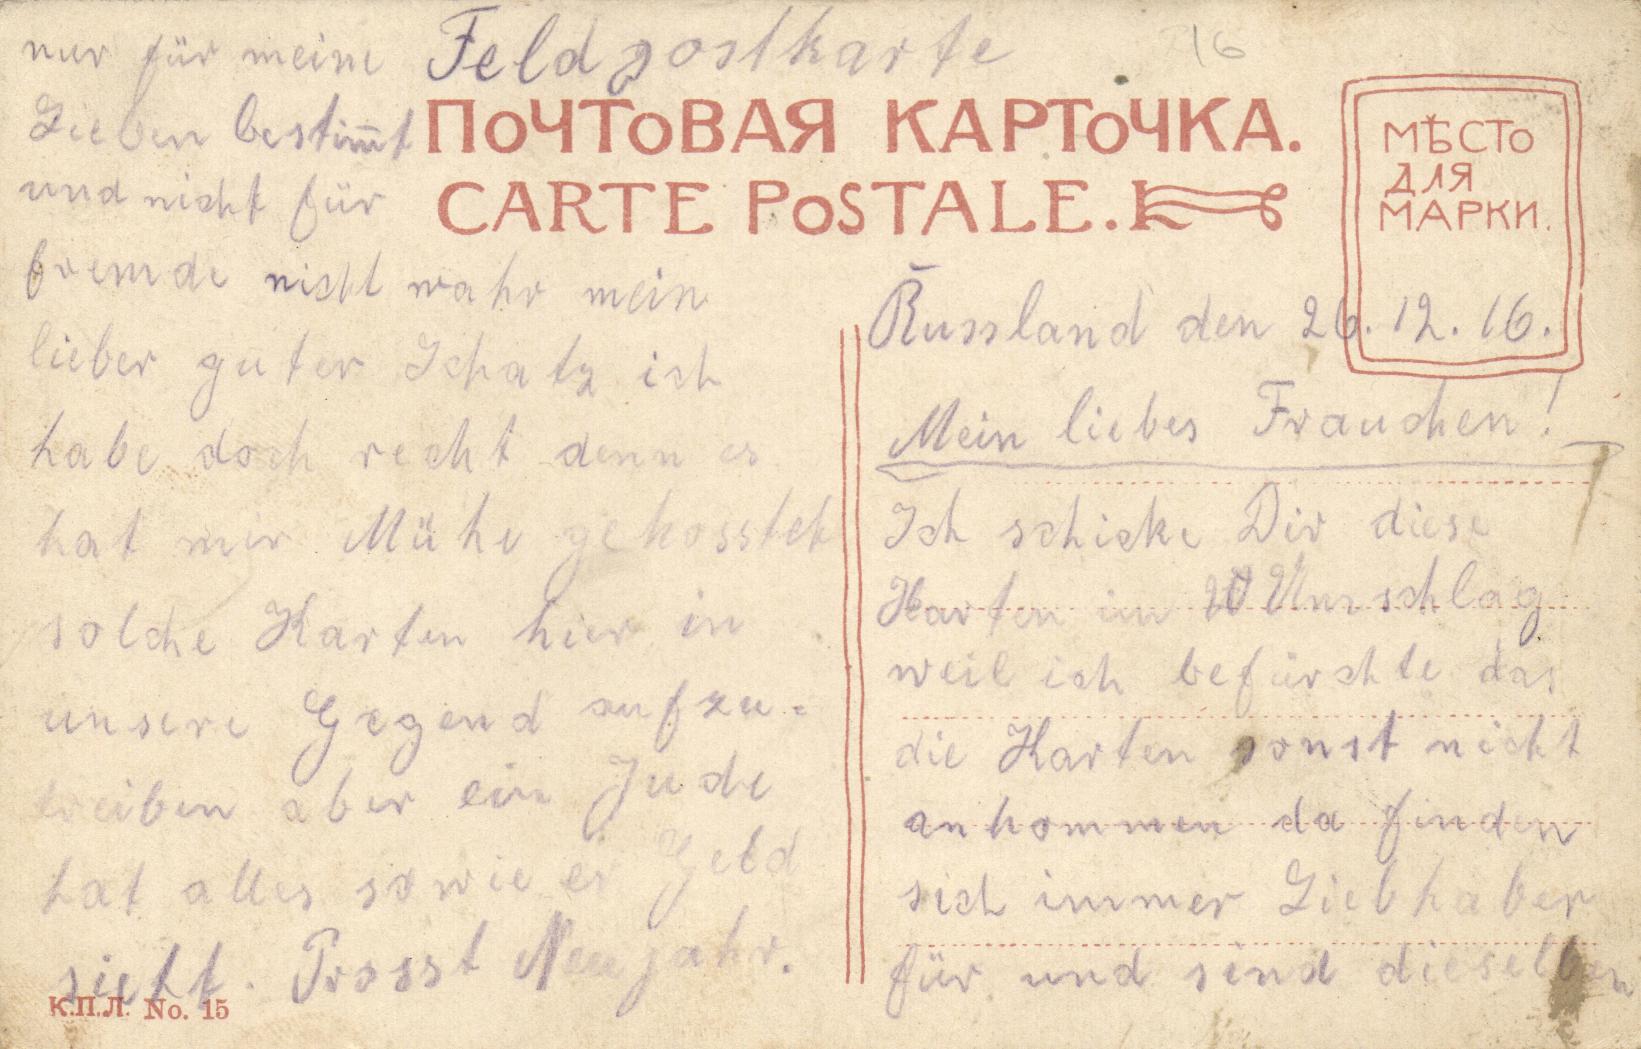 Feldpostkarte
16
ПОЧТОВАЯ КАРТОЧКА.
CARTE POSTALE.
МѢСТО
ДЛЯ
МАРКИ.
Russland den 26. 12. 16.
Mein liebes Frauchen!
Ich schicke Dir diese
Karten im Umschlag
weil ich befürchte das
die Karten sonst nicht
ankommen da finden
sich immer Liebhaber
für und sind dieselben
nur für meine
Lieben bestim̅t
und nicht für
fremde nicht wahr mein
lieber guter Schatz ich
habe doch recht denn es
hat mir Mühe gekosstet
solche Karten hier in
unsere Gegend aufzu-
treiben aber ein Jude
hat alles sowie er Geld
sieht. Prosst Neujahr.
К.П.Л. No. 15